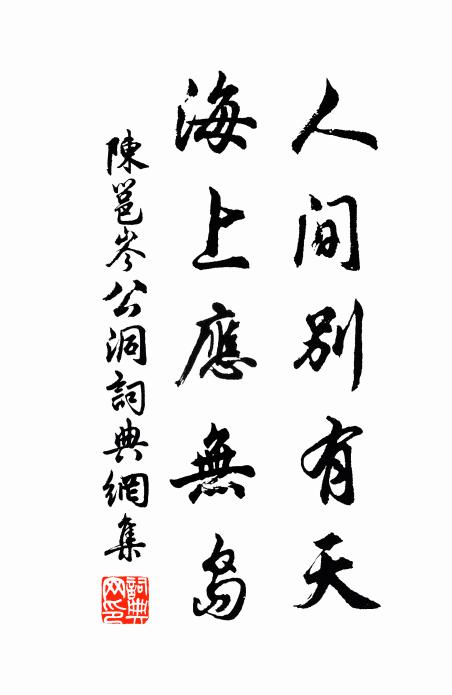 人间别有天
海上應無島
陳邕岑公洞詞典網集
詞典網印